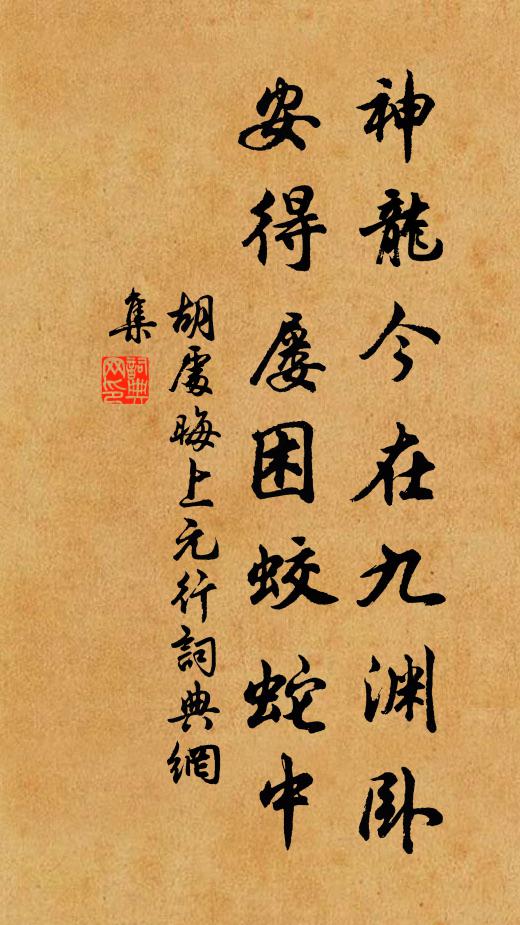 神龍今在九渊卧
安得屡困蛟蛇中
胡處晦上元行詞典網
集
詞典网印